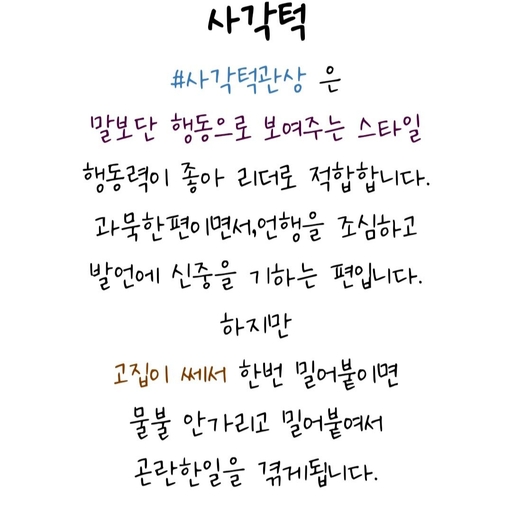 사각턱
#사각턱관상 은
말보단 행동으로 보여주는 스타일
행동력이 좋아 리더로 적합합니다.
과묵한편이면서,언행을 조심하고
발언에 신중을 기하는 편입니다.
하지만
고집이 쎄서 한번 밀어붙이면
물불 안가리고 밀어붙여서
곤란한일을 겪게됩니다.